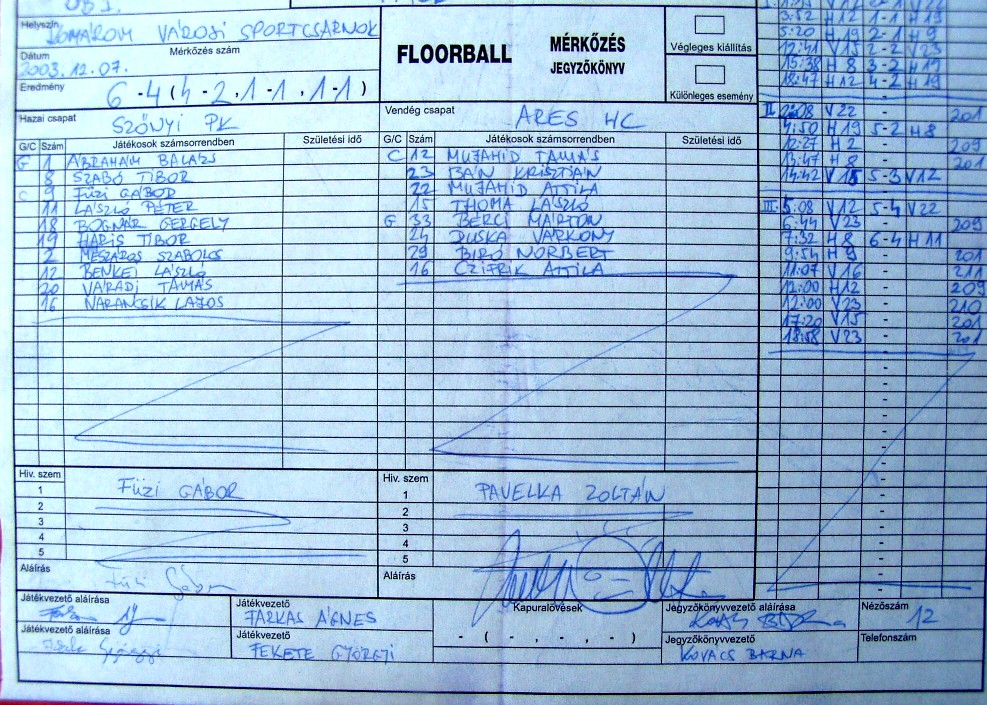 Helyszín
KOMÁROM VÁROSI SPORTCSARNOK
Dátum Mérkőzés szám
2003.12.07.
Eredmény
6-4 (4-2, 1-1, 1-1)
FLOORBALL MÉRKŐZÉS JEGYZŐKÖNYV
Végleges kiállítás
Különleges esemény
Hazai csapat SZŐNYI PK
Vendég csapat ARES HC
G/C Szám Játékosok számsorrendben Születési idő G/C Szám Játékosok számsorrendben Születési idő
G 1 ÁBRAHÁM BALÁZS
8 SZABÓ TIBOR
C 9 FÜZI GÁBOR
11 LÁSZLÓ PÉTER
18 BOGNÁR GERGELY
19 HARIS TIBOR
2 MÉSZÁROS SZABOLCS
12 BENKEI LÁSZLÓ
20 VÁRADI TAMÁS
16 NARANCSIK LAJOS
C 12 MUJAHID TAMÁS
23 BÁN KRISZTIÁN
22 MUJAHID ATTILA
15 THOMA LÁSZLÓ
G 33 BERCI MÁRTON
24 DUSKA VÁRKONY
29 BIRÓ NORBERT
16 CZIFRIK ATTILA
3:52 H12 1-1 H19
5:20 H19 2-1 H9
12:41 V15 2-2 V23
15:38 H8 3-2 H19
18:47 H12 4-2 H19
-
II. 2:08 V22 - 201
4:50 H19 5-2 H8
12:27 H2 - 209
13:47 H8 - 201
14:42 V15 5-3 V12
III. 5:08 V12 5-4 V22
6:44 V23 - 209
7:32 H8 6-4 H11
9:54 H9 - 201
11:07 V16 - 211
12:00 H12 - 209
12:00 V23 - 210
17:20 V15 - 201
18:58 V23 - 201
Hiv. szem
1 FÜZI GÁBOR
2
3
4
5
Aláírás
Füzi Gábor
Hiv. szem
1 PAVELKA ZOLTÁN
2
3
4
5
Aláírás
Játékvezető aláírása
Játékvezető
FARKAS ÁGNES
Játékvezető aláírása
Játékvezető
FEKETE GYÖRGYI
Kapuralövések
- ( - , - , - )
Jegyzőkönyvvezető aláírása
Jegyzőkönyvvezető
KOVÁCS BARNA
Nézőszám
12
Telefonszám